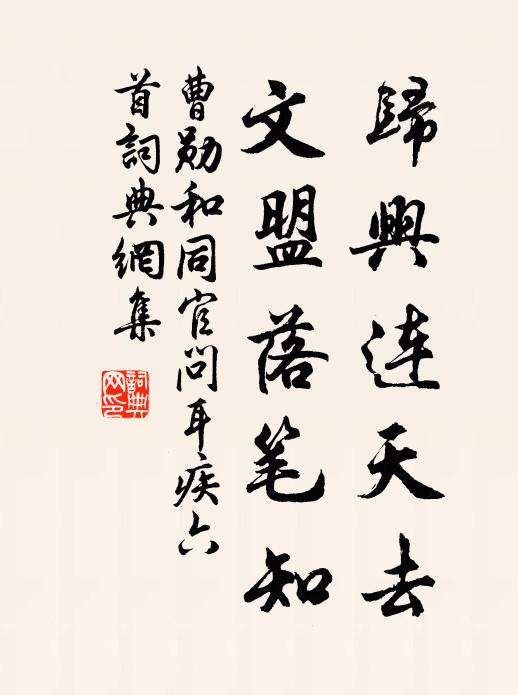 歸興连天去
文盟落笔知
曹勋和同官问耳疾六
首詞典網集
詞典
网印